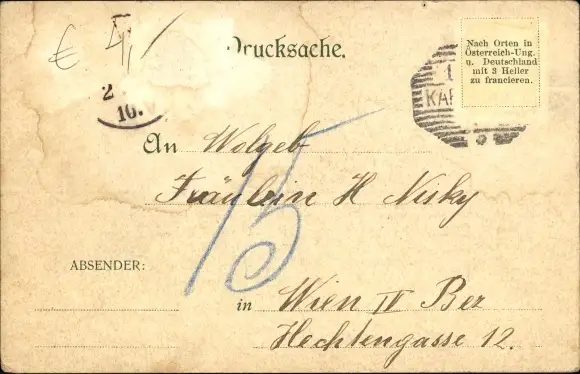 € 4,/
Drucksache.
Nach Orten in
Österreich-Ung.
u. Deutschland
mit 3 Heller
zu francieren.
1
KAR
2
10.
An Wolgeb
Fräulein H Nisky
15
ABSENDER:
in Wien IV Bez
Hechtengasse 12.